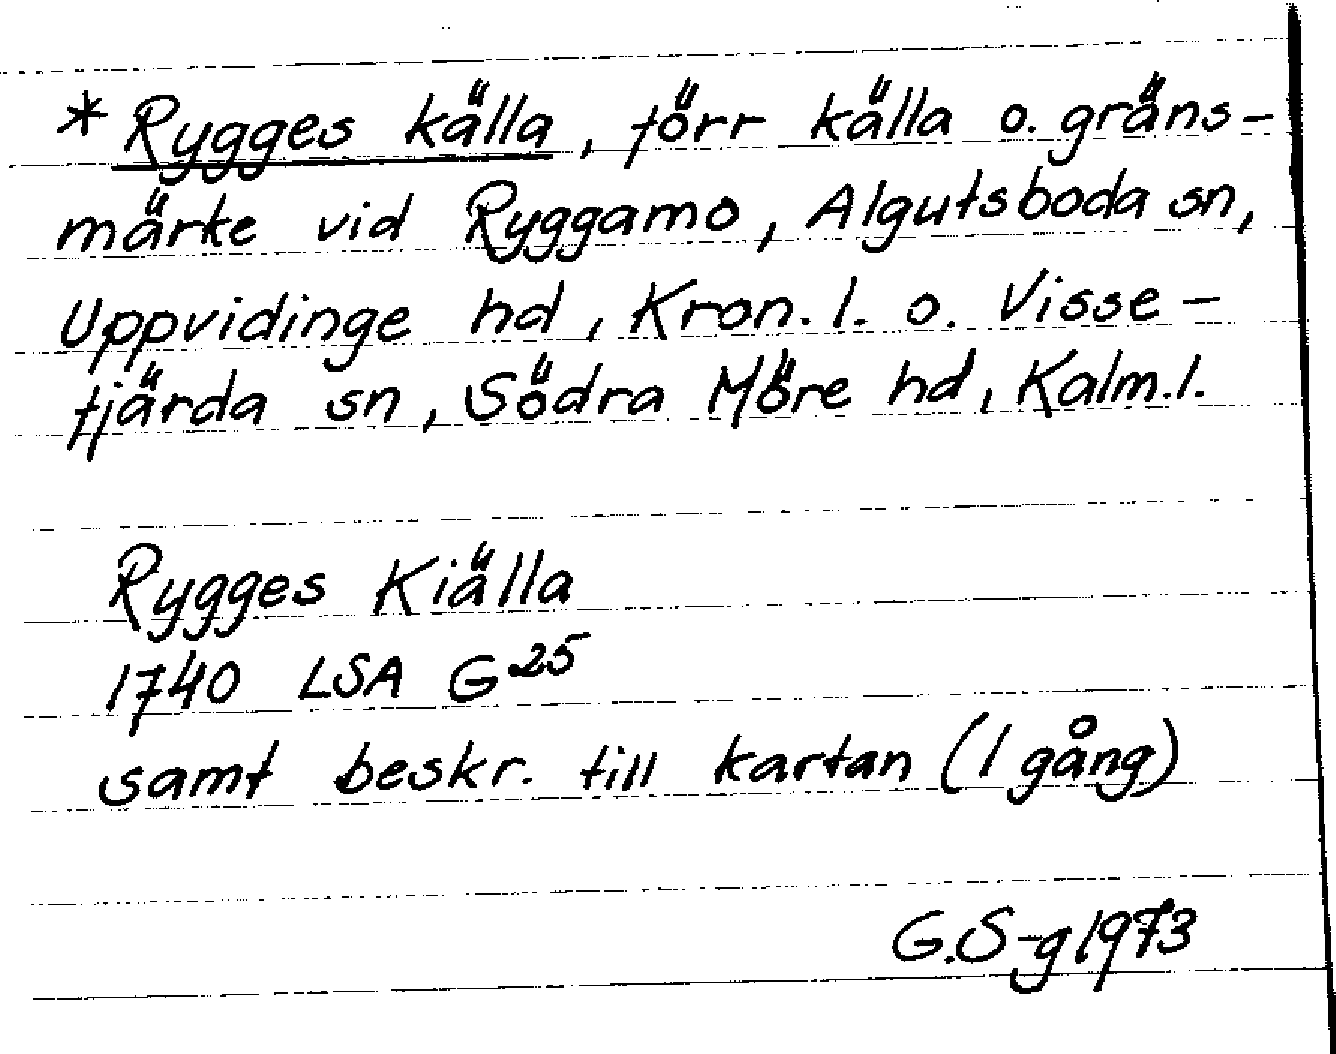 * Rygges källa, förr källa o. gräns-
märke vid Ryggamo, Algutsboda sn,
Uppvidinge hd, Kron. l. o. Visse-
fjärda sn, Södra Möre hd, Kalm. l.
Rygges Kiälla
1740 LSA G25
samt beskr. till kartan (1 gång)
G.S-g 1973